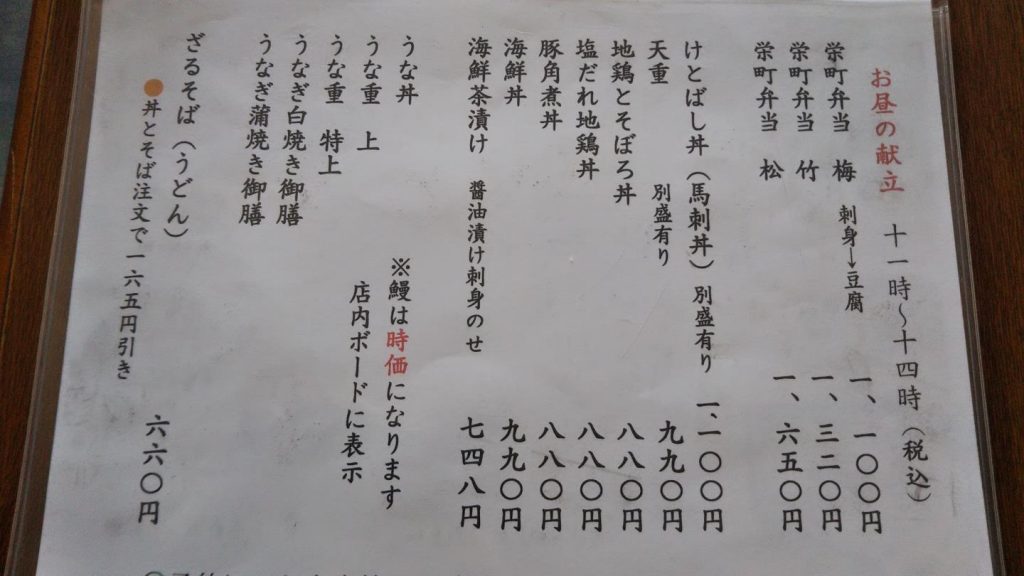 お昼の献立 十一時～十四時（税込）
栄町弁当 梅 刺身→豆腐 一、一〇〇円
栄町弁当 竹 一、三二〇円
栄町弁当 松 一、六五〇円
けとばし丼（馬刺丼）別盛有り 一、一〇〇円
天重 別盛有り 九九〇円
地鶏とそぼろ丼 八八〇円
塩だれ地鶏丼 八八〇円
豚角煮丼 八八〇円
海鮮丼 九九〇円
海鮮茶漬け 醤油漬け刺身のせ 七四八円
うな丼
うな重 上
うな重 特上
うなぎ白焼き御膳
うなぎ蒲焼き御膳
※鰻は時価になります
店内ボードに表示
ざるそば（うどん） 六六〇円
●丼とそば注文で一六五円引き